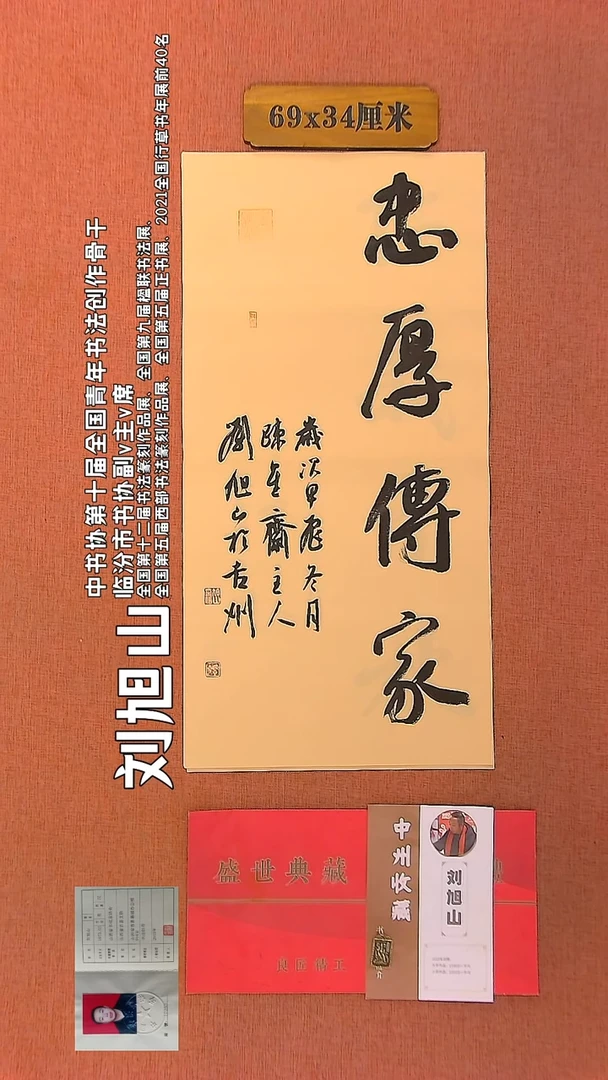 69x34厘米
忠厚傳家
歲次甲辰冬月
陳兽齋主人
劉旭山於古州
刘旭山
中书协第十届全国青年书法创作骨干
临汾市书协副v主v席
全国第十二届书法篆刻作品展、全国第九届楹联书法展、
全国第五届西部书法篆刻作品展、全国第五届正书展、2021全国行草书年展前40名
盛世典藏
良匠精工
中州收藏
刘旭山